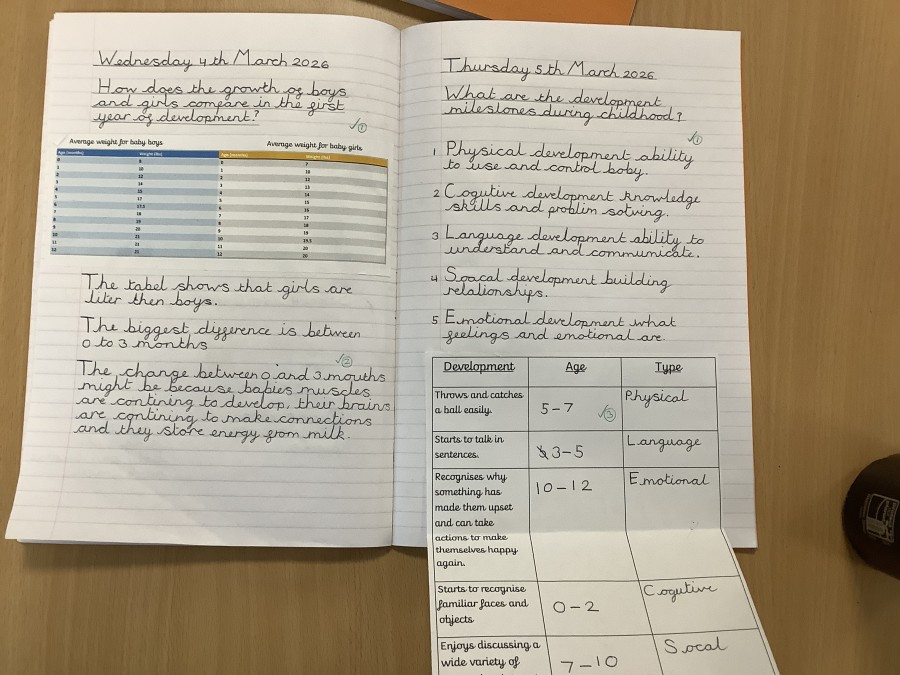 Wednesday 4th March 2026
How does the growth of boys
and girls compare in the first
year of development?
Average weight for baby boys
Average weight for baby girls
Age (months) Weight (lbs) Age (months) Weight (lbs)
The tabel shows that girls are
liter then boys.
The biggest difference is between
0 to 3 months
The change between 0 and 3 mouths
might be because babies muscles
are contining to develop, their brains
are contining to make connections
and they store energy from milk.
Thursday 5th March 2026
What are the development
milestones during childhood?
1 Physical development ability
to use and control boby.
2 Cogutive development knowledge
skills and problim solving.
3 Language development ability to
understand and communicate.
4 Soacal development building
relationships.
5 Emotional development what
feelings and emotional are.
Development Age Type
Throws and catches
a ball easily.
5-7
Physical
Starts to talk in
sentences.
3-5
Language
Recognises why
something has
made them upset
and can take
actions to make
themselves happy
again.
10-12
Emotional
Starts to recognise
familiar faces and
objects
0-2
Cogutive
Enjoys discussing a
wide variety of
7-10
Socal